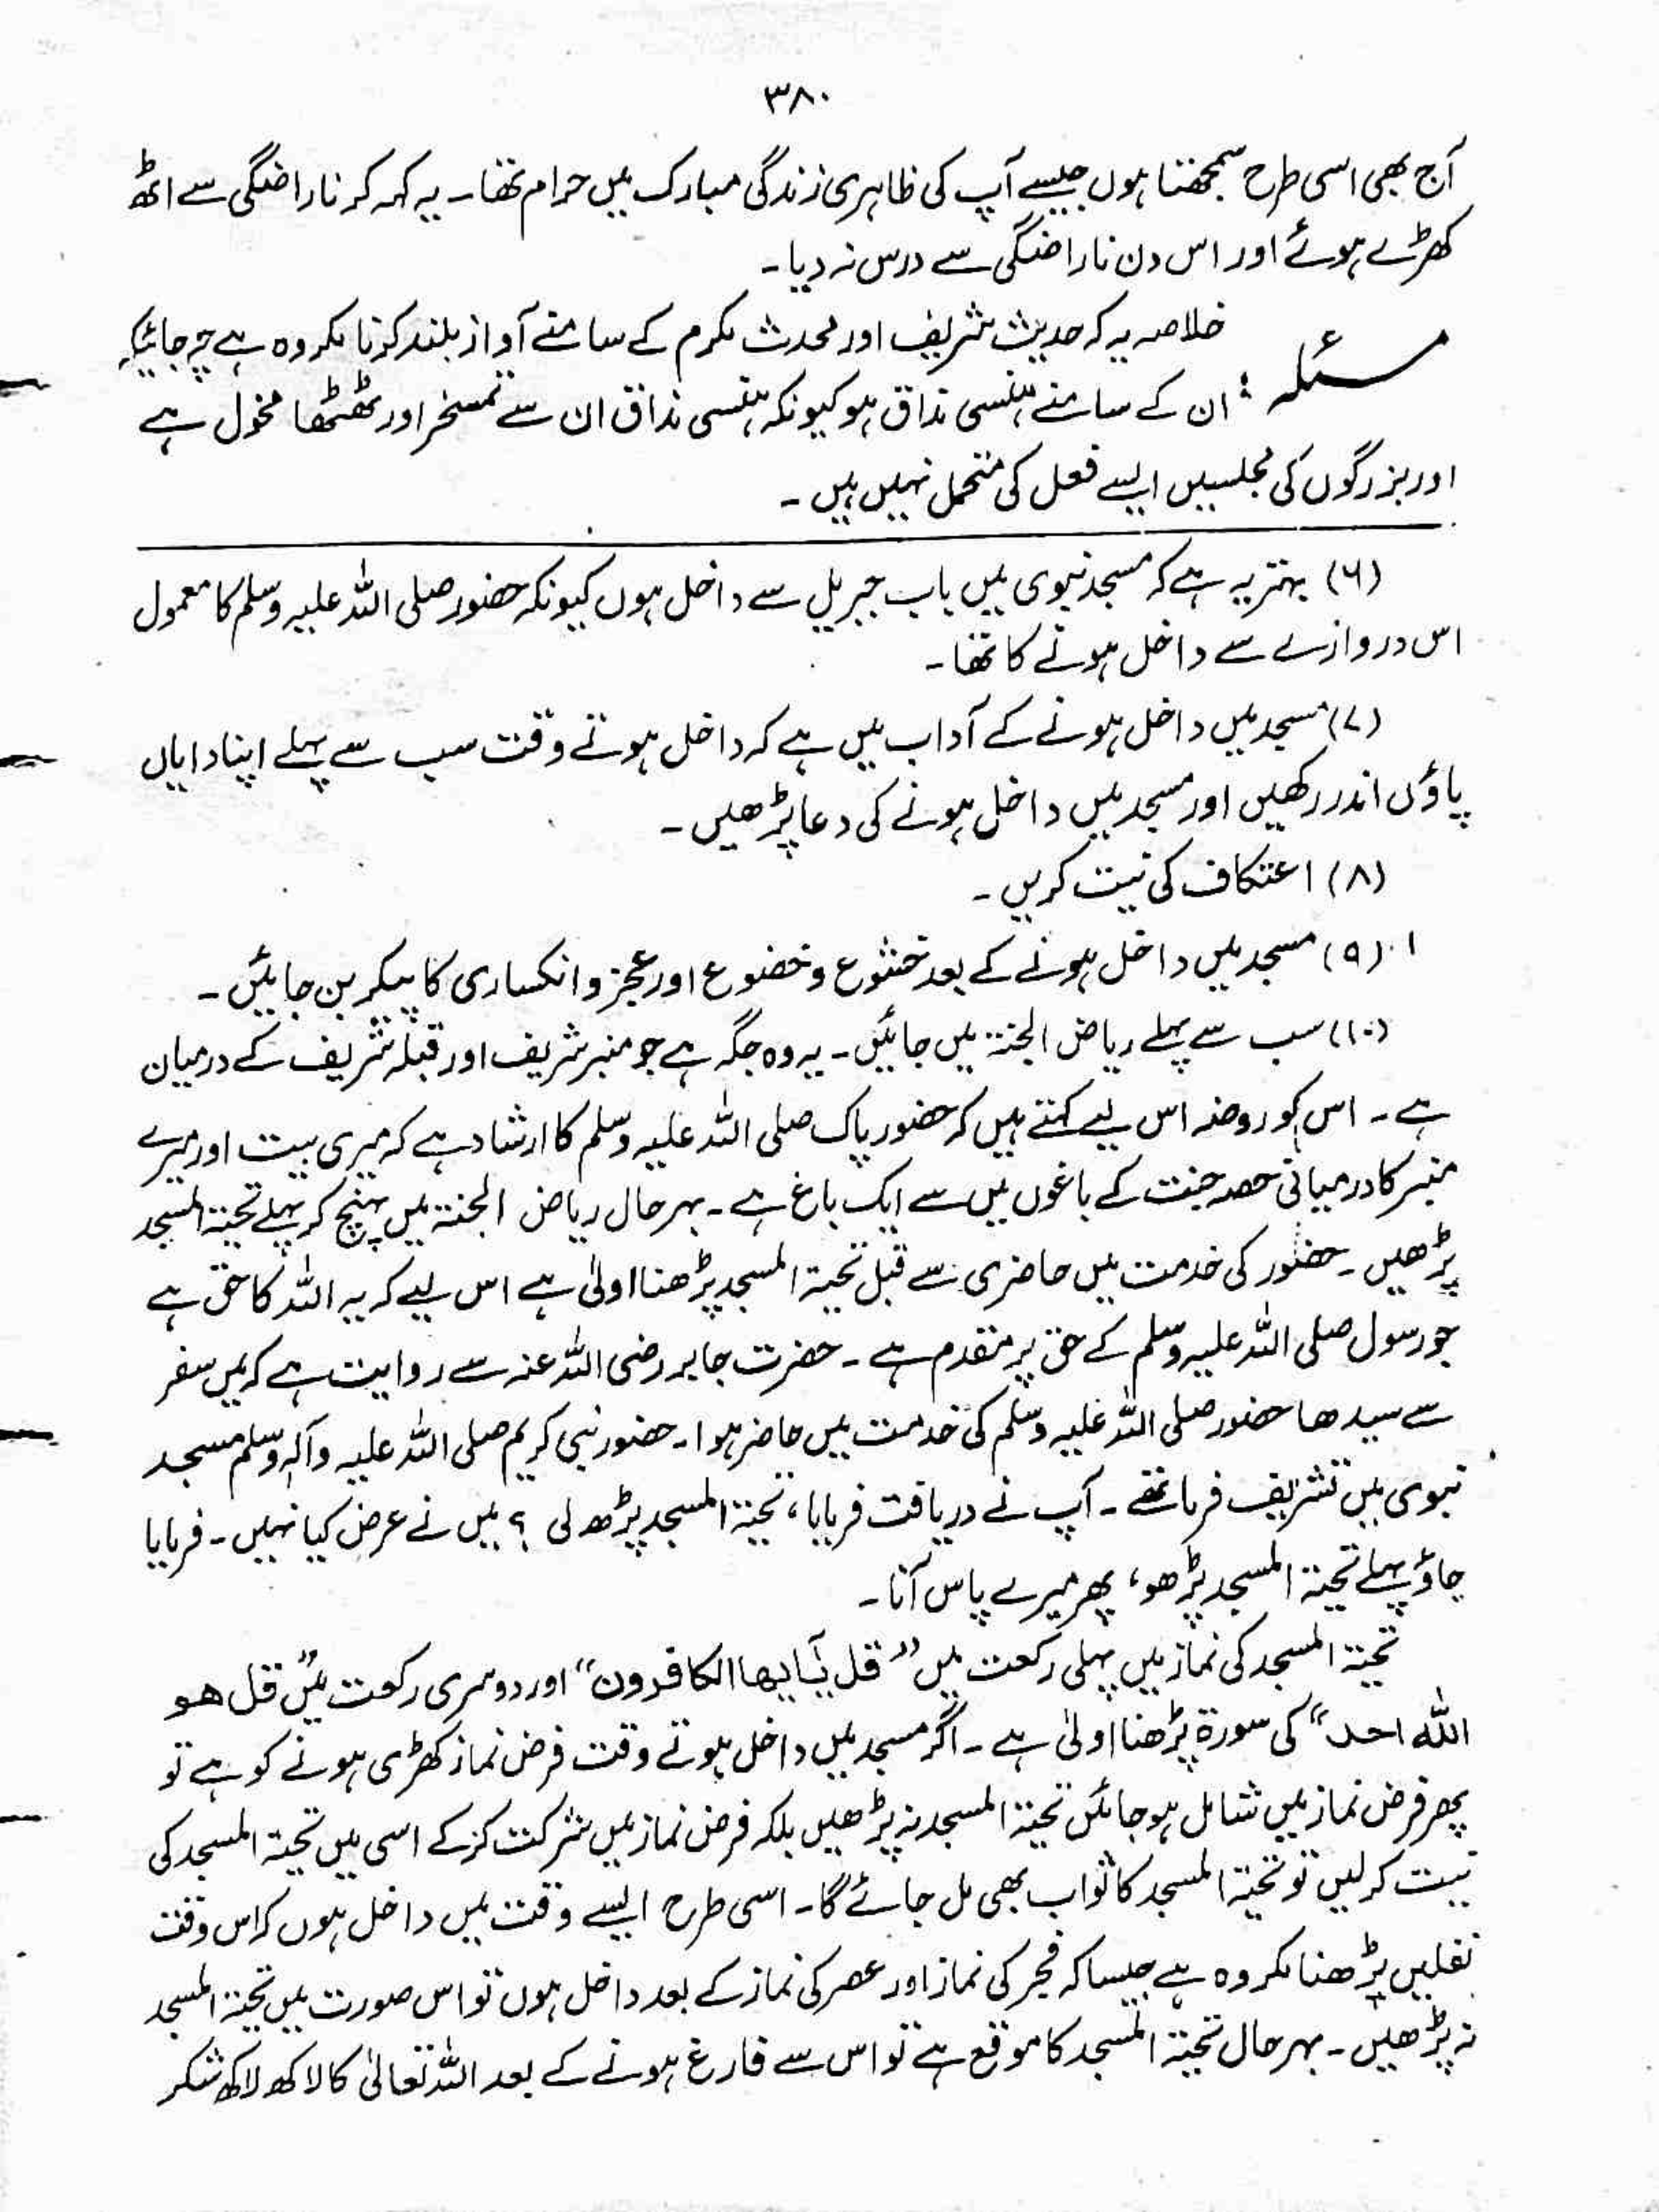 ۳۸۰
آج بھی اسی طرح سمجھتا ہوں جیسے آپ کی ظاہری زندگی مبارک میں حرام تھا۔ یہ کہہ کر ناراضگی سے اٹھ
کھڑے ہوئے اور اس دن ناراضگی سے درس نہ دیا۔
خلاصہ یہ کہ حدیث شریف اور محدث مکرم کے سامنے آواز بلند کرنا مکروہ ہے چہ جائیکہ
مسئلہ : ان کے سامنے ہنسی مذاق ہو کیونکہ ہنسی مذاق ان سے تمسخر اور ٹھٹھا مخول ہے
اور بزرگوں کی مجلسیں ایسے فعل کی متحمل نہیں ہیں۔
(۶) بہتر یہ ہے کہ مسجد نبوی میں باب جبریل سے داخل ہوں کیونکہ حضور صلی اللہ علیہ وسلم کا معمول
اس دروازے سے داخل ہونے کا تھا۔
(۷) مسجد میں داخل ہونے کے آداب میں ہے کہ داخل ہوتے وقت سب سے پہلے اپنا دایاں
پاؤں اندر رکھیں اور مسجد میں داخل ہونے کی دعا پڑھیں۔
(۸) اعتکاف کی نیت کریں۔
(۹) مسجد میں داخل ہونے کے بعد خشوع و خضوع اور عجز و انکساری کا پیکر بن جائیں۔
(۱۰) سب سے پہلے ریاض الجنۃ میں جائیں۔ یہ وہ جگہ ہے جو منبر شریف اور قبلہ شریف کے درمیان
ہے۔ اس کو روضہ اس لیے کہتے ہیں کہ حضور پاک صلی اللہ علیہ وسلم کا ارشاد ہے کہ میری بیت اور میرے
منبر کا درمیانی حصہ جنت کے باغوں میں سے ایک باغ ہے۔ بہرحال ریاض الجنۃ میں پہنچ کر پہلے تحیۃ المسجد
پڑھیں۔ حضور کی خدمت میں حاضری سے قبل تحیۃ المسجد پڑھنا اولیٰ ہے اس لیے کہ یہ اللہ کا حق ہے
جو رسول صلی اللہ علیہ وسلم کے حق پر مقدم ہے۔ حضرت جابر رضی اللہ عنہ سے روایت ہے کہ میں سفر
سے سیدھا حضور صلی اللہ علیہ وسلم کی خدمت میں حاضر ہوا۔ حضور نبی کریم صلی اللہ علیہ وآلہ وسلم مسجد
نبوی میں تشریف فرما تھے۔ آپ نے دریافت فرمایا، تحیۃ المسجد پڑھ لی ؟ میں نے عرض کیا نہیں۔ فرمایا
جاؤ پہلے تحیۃ المسجد پڑھو، پھر میرے پاس آنا۔
تحیۃ المسجد کی نماز میں پہلی رکعت میں ”قل یٰآیھا الکافرون“ اور دوسری رکعت میں ”قل ھو
اللہ احد“ کی سورۃ پڑھنا اولیٰ ہے۔ اگر مسجد میں داخل ہوتے وقت فرض نماز کھڑی ہونے کو ہے تو
پھر فرض نماز میں شامل ہو جائیں تحیۃ المسجد نہ پڑھیں بلکہ فرض نماز میں شرکت کر کے اسی میں تحیۃ المسجد کی
نیت کر لیں تو تحیۃ المسجد کا ثواب بھی مل جائے گا۔ اسی طرح ایسے وقت میں داخل ہوں کہ اس وقت
نفلیں پڑھنا مکروہ ہے جیسا کہ فجر کی نماز اور عصر کی نماز کے بعد داخل ہوں تو اس صورت میں تحیۃ المسجد
نہ پڑھیں۔ بہرحال تحیۃ المسجد کا موقع ہے تو اس سے فارغ ہونے کے بعد اللہ تعالیٰ کا لاکھ لاکھ شکر